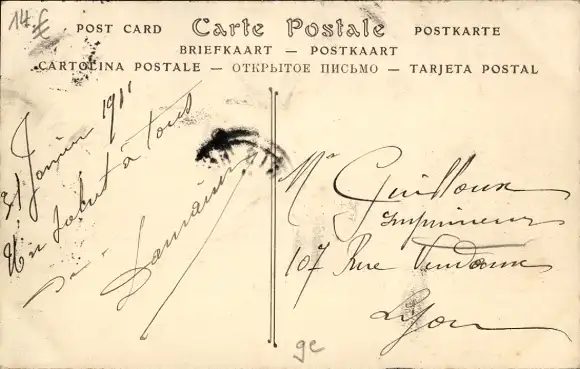 14 €
POST CARD Carte Postale POSTKARTE
BRIEFKAART — POSTKAART
CARTOLINA POSTALE — ОТКРЫТОЕ ПИСЬМО — TARJETA POSTAL
31 Janvier 1911
Un salut à tous
Mr Guilloux
Imprimeur
107 Rue Vendôme
Lyon
ge